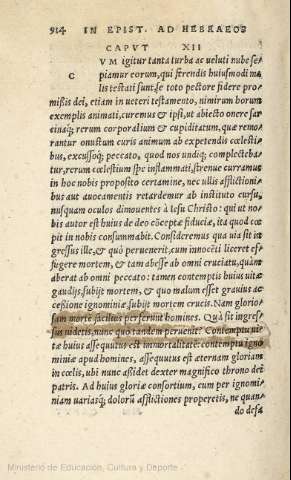 914 IN EPIST. AD HEBRAEOS
CAPVT XII
C VM igitur tanta turba ac ueluti nube sepiamur
piamur eorum, qui ferendis huiusmodi malis
lis testati sunt, se toto pectore fidere promißis
mißis dei, etiam in ueteri testamento, nimirum horum
exemplis animati, curemus & ipsi, ut abiecto onere sarcinaq́;
rerum corporalium & cupiditatum, quæ remorantur
rantur onustum curis animum ab expetendis cœlestibus
bus, excussoq́; peccato, quod nos undiq; complectebatur
tur, rerum cœlestium spe inflammati, strenue curramus
in hoc nobis proposito certamine, nec ullis afflictionibus
bus aut auocamentis retardemur ab instituto cursu,
nusquam oculos dimouentes à Iesu Christo: qui ut nobis
bis autor est huius de deo cõceptæ fiduciæ, ita quod cœpit
pit in nobis consummabit. Consideremus qua uia sit ingressus
gressus ille, & quò peruenerit, cum innocẽti liceret effugere
fugere mortem, & tam abesse ab omni cruciatu, quàm
aberat ab omni peccato: tamen contemptis huius uitæ
gaudijs, subijt mortem, & quo malum esset grauius accessione
ceßione ignominiæ, subijt mortem crucis. Nam gloriosam
sam morte facilius perferunt homines. Quà sit ingressus
sus uidetis, nunc quo tandem peruenit? Contemptu uitæ
tæ huius assequutus est immortalitatẽ: contemptu ignominiæ
miniæ apud homines, assequutus est æternam gloriam
in cœlis, ubi nunc aßidet dexter magnifico throno dei
patris. Ad huius gloriæ consortium, cum per ignominiam
niam uariasq́; dolorũ afflictiones properetis, ne quando
do desa
Ministerio de Educación, Cultura y Deporte